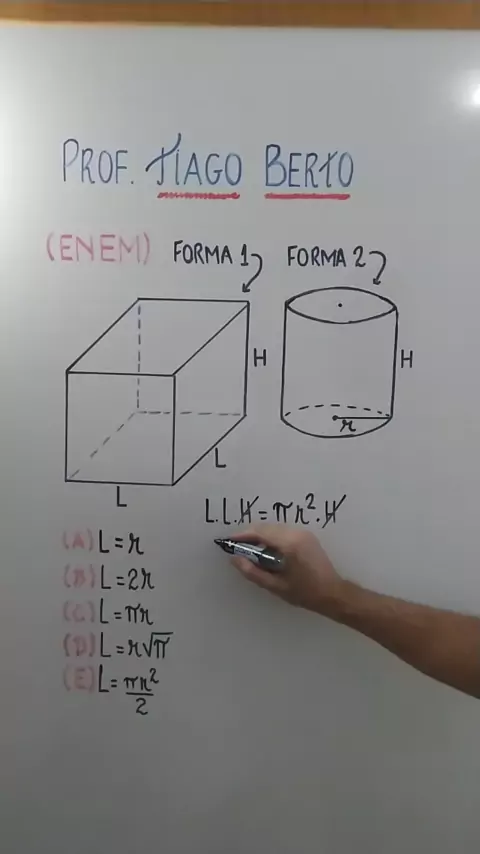 PROF. TIAGO BERTO
(ENEM) FORMA 1 FORMA 2
H
H
r
L
L
L.L.H = πr².H
(A) L = r
(B) L = 2r
(C) L = πr
(D) L = r√π
(E) L = πr²/2